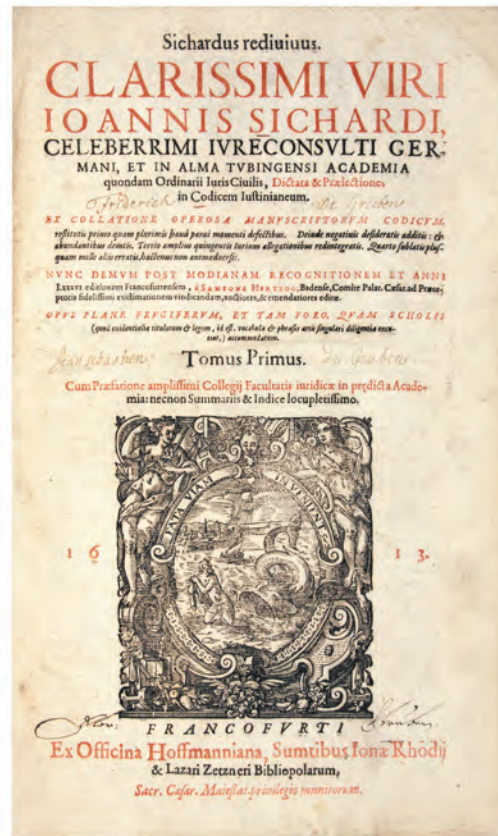 Sichardus rediuiuus.
CLARISSIMI VIRI
IOANNIS SICHARDI,
CELEBERRIMI IVRECONSVLTI GER-
MANI, ET IN ALMA TVBINGENSI ACADEMIA
quondam Ordinarii Iuris Ciuilis, Dictata & Prælectiones
in Codicem Iustinianeum.
Friderich De Gruben
EX COLLATIONE OPEROSA MANVSCRIPTORVM CODICVM,
restitutis primo quam plurimis haud parui momenti defectibus. Deinde negatiuis desideratis additis: &
abundantibus demtis. Tertio amplius quingentis iurium allegationibus redintegratis. Quarto sublatis plus
quam mille aliis erratis, hactenus non animaduersis.
NVNC DEMVM POST MODIANAM RECOGNITIONEM ET ANNI
LXXXVI editionem Francofurtensem, à SAMSONE HERTZOG, Badense, Comite Palat. Cæsar. ad Præce-
ptoris fidelissimi existimationem vindicandam, auctiores, & emendatiores editæ.
OPVS PLANE FRVGIFERVM, ET TAM FORO, QVAM SCHOLIS
(quod euidentialia titulorum & legum, id est, vocabula & phrases artis singulari diligentia
) accommodatum.
Jean Sebastien De Gruben
Tomus Primus.
Cum Præfatione amplissimi Collegij Facultatis iuridicæ in prędicta Acade-
mia: necnon Summariis & Indice locupletissimo.
FATA VIAM INVENIENT
1 6 1 3.
FRANCOFVRTI
Ex Officina Hoffmanniana, Sumtibus Ionæ Rhodij
& Lazari Zetzneri Bibliopolarum,
Sacr. Cæsar. Maiestat. priuilegio munitorum.